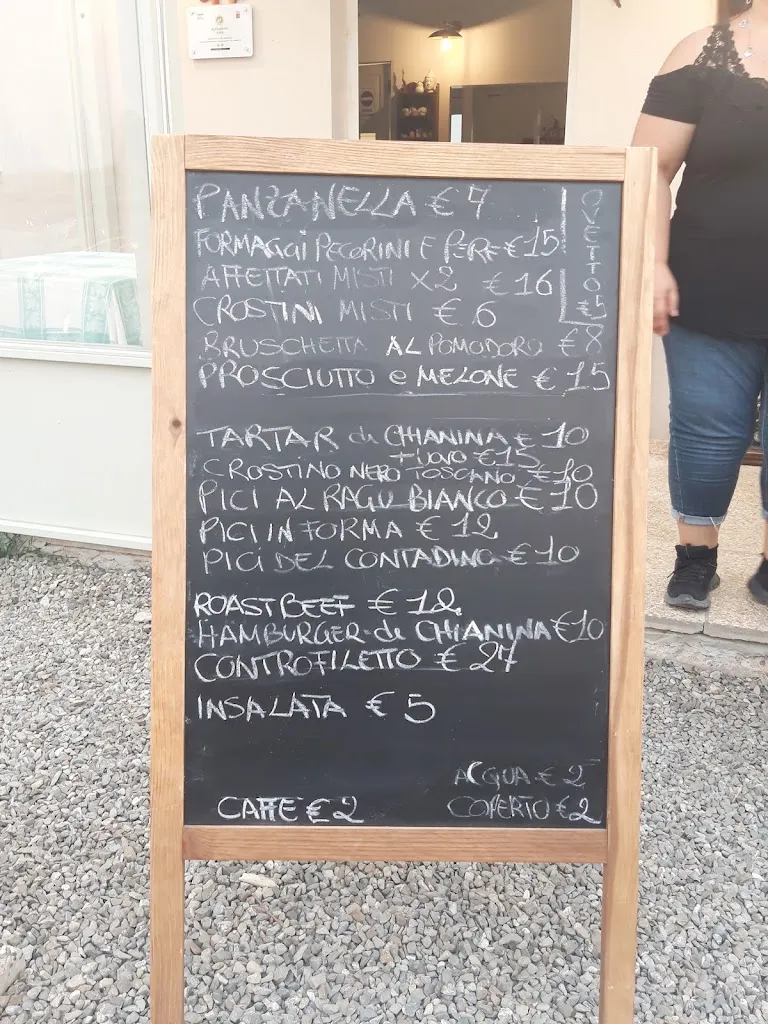 PANZANELLA € 7
FORMAGGI PECORINI E PERE € 15
AFFETTATI MISTI X2 € 16
CROSTINI MISTI € 6
OVETTO €5
BRUSCHETTA AL POMODORO € 8
PROSCIUTTO e MELONE € 15
TARTAR di CHIANINA € 10
+ UOVO € 15
CROSTINO NERO TOSCANO € 10
PICI AL RAGU BIANCO € 10
PICI IN FORMA € 12
PICI DEL CONTADINO € 10
ROAST BEEF € 12
HAMBURGER di CHIANINA €10
CONTROFILETTO € 27
INSALATA € 5
ACQUA € 2
CAFFE € 2
COPERTO € 2